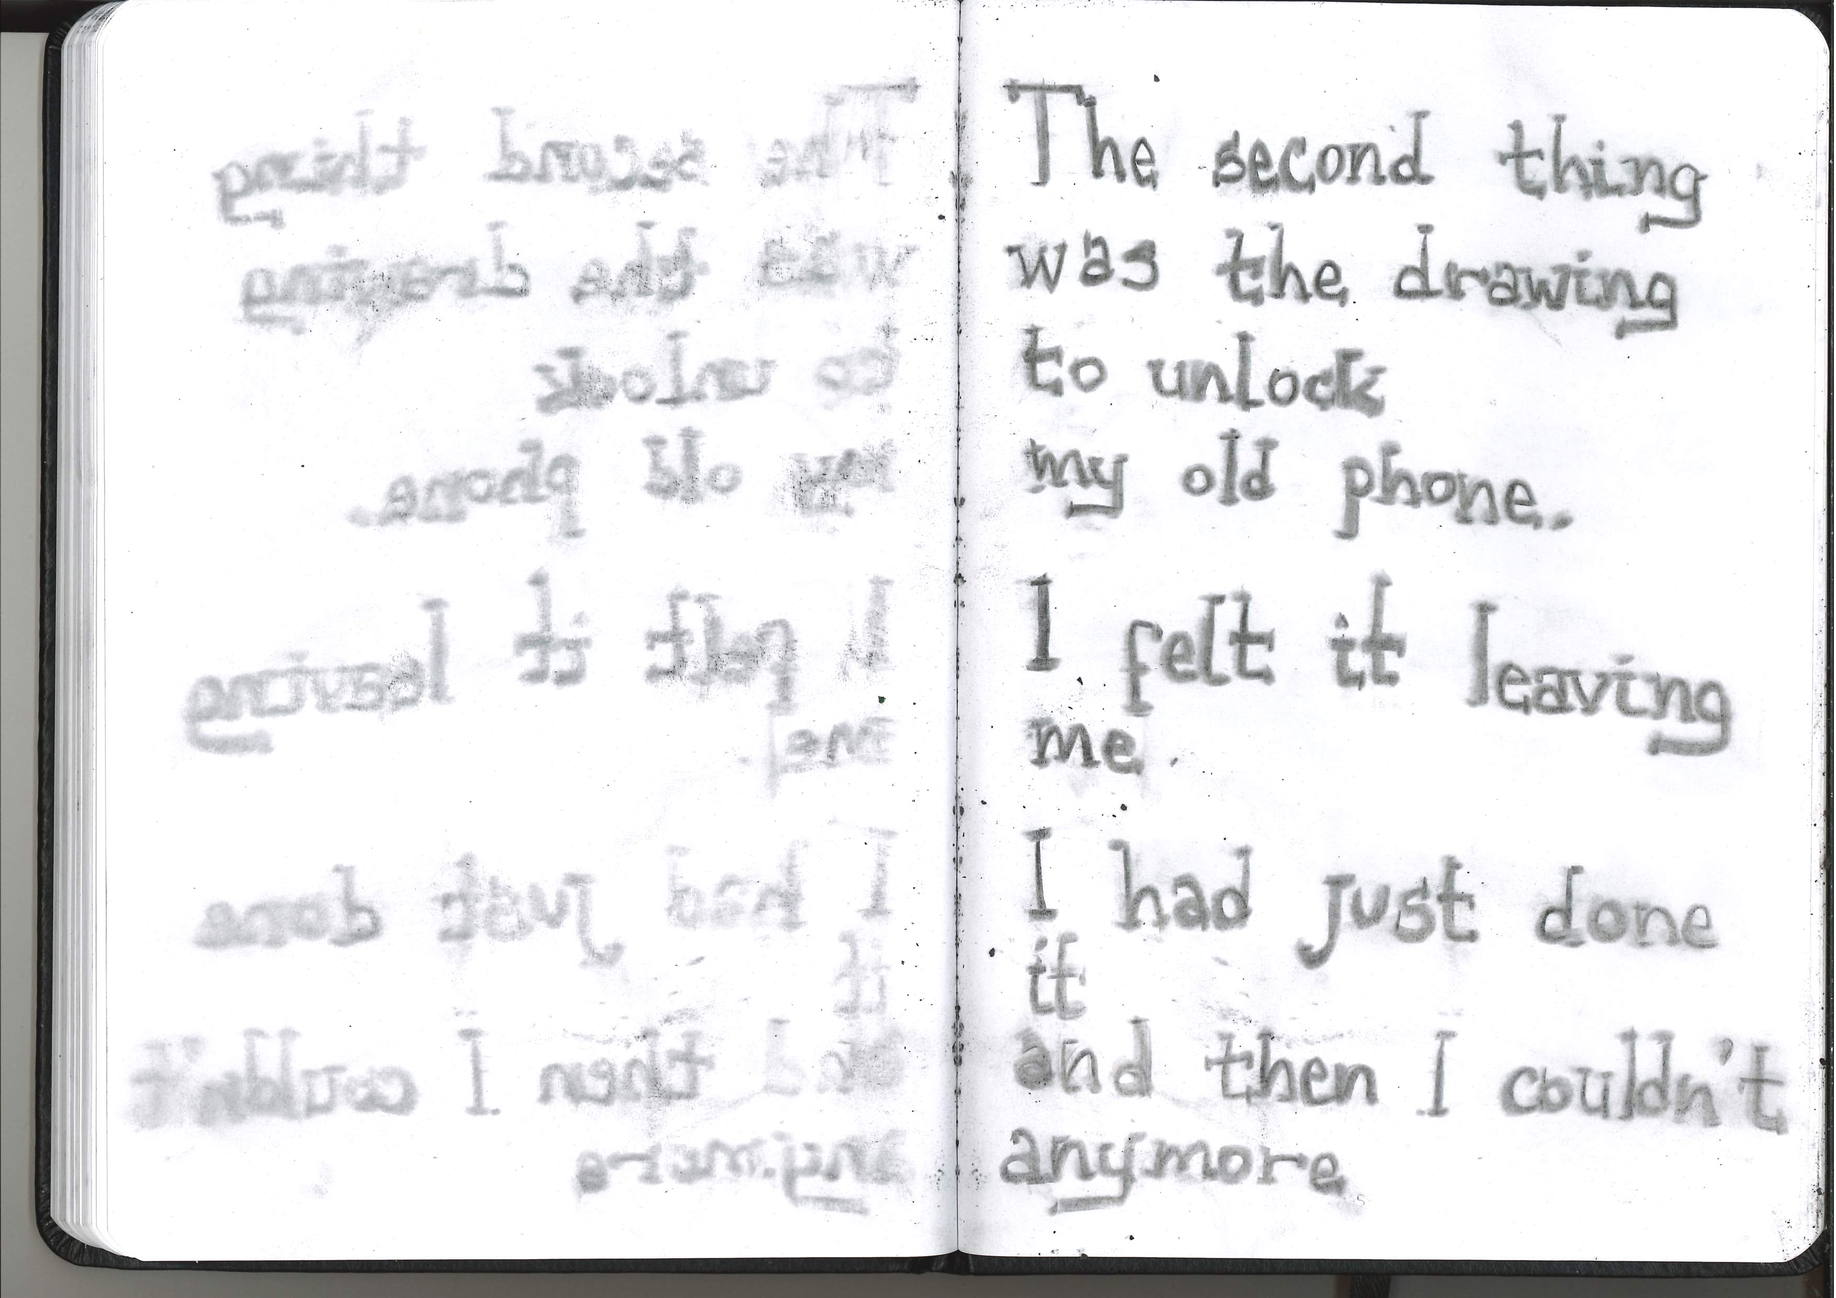 The second thing
was the drawing
to unlock
my old phone.
I felt it leaving
me.
I had just done
it
and then I couldn't
anymore